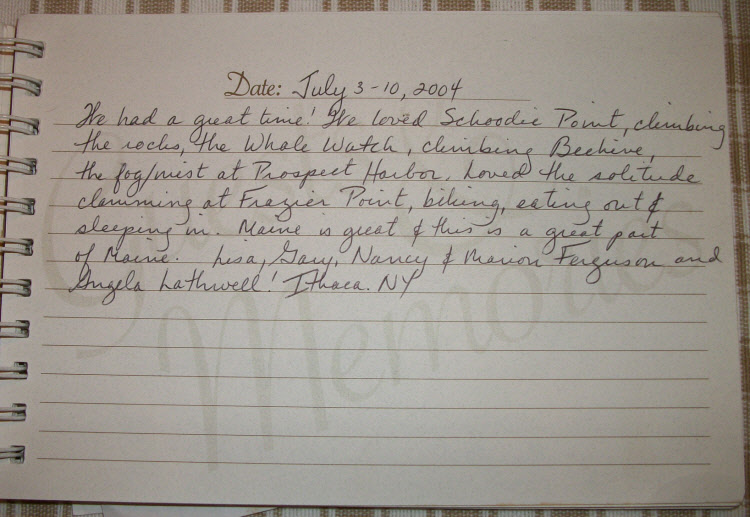 Date: July 3-10, 2004
We had a great time! We loved Schoodic Point, climbing
the rocks, the Whale Watch, climbing Beehive,
the fog/mist at Prospect Harbor. Loved the solitude
clamming at Frazier Point, biking, eating out &
sleeping in. Maine is great & this is a great part
of Maine. Lisa, Gary, Nancy & Marion Ferguson and
Angela Lathwell! Ithaca. NY
Guest
Memories